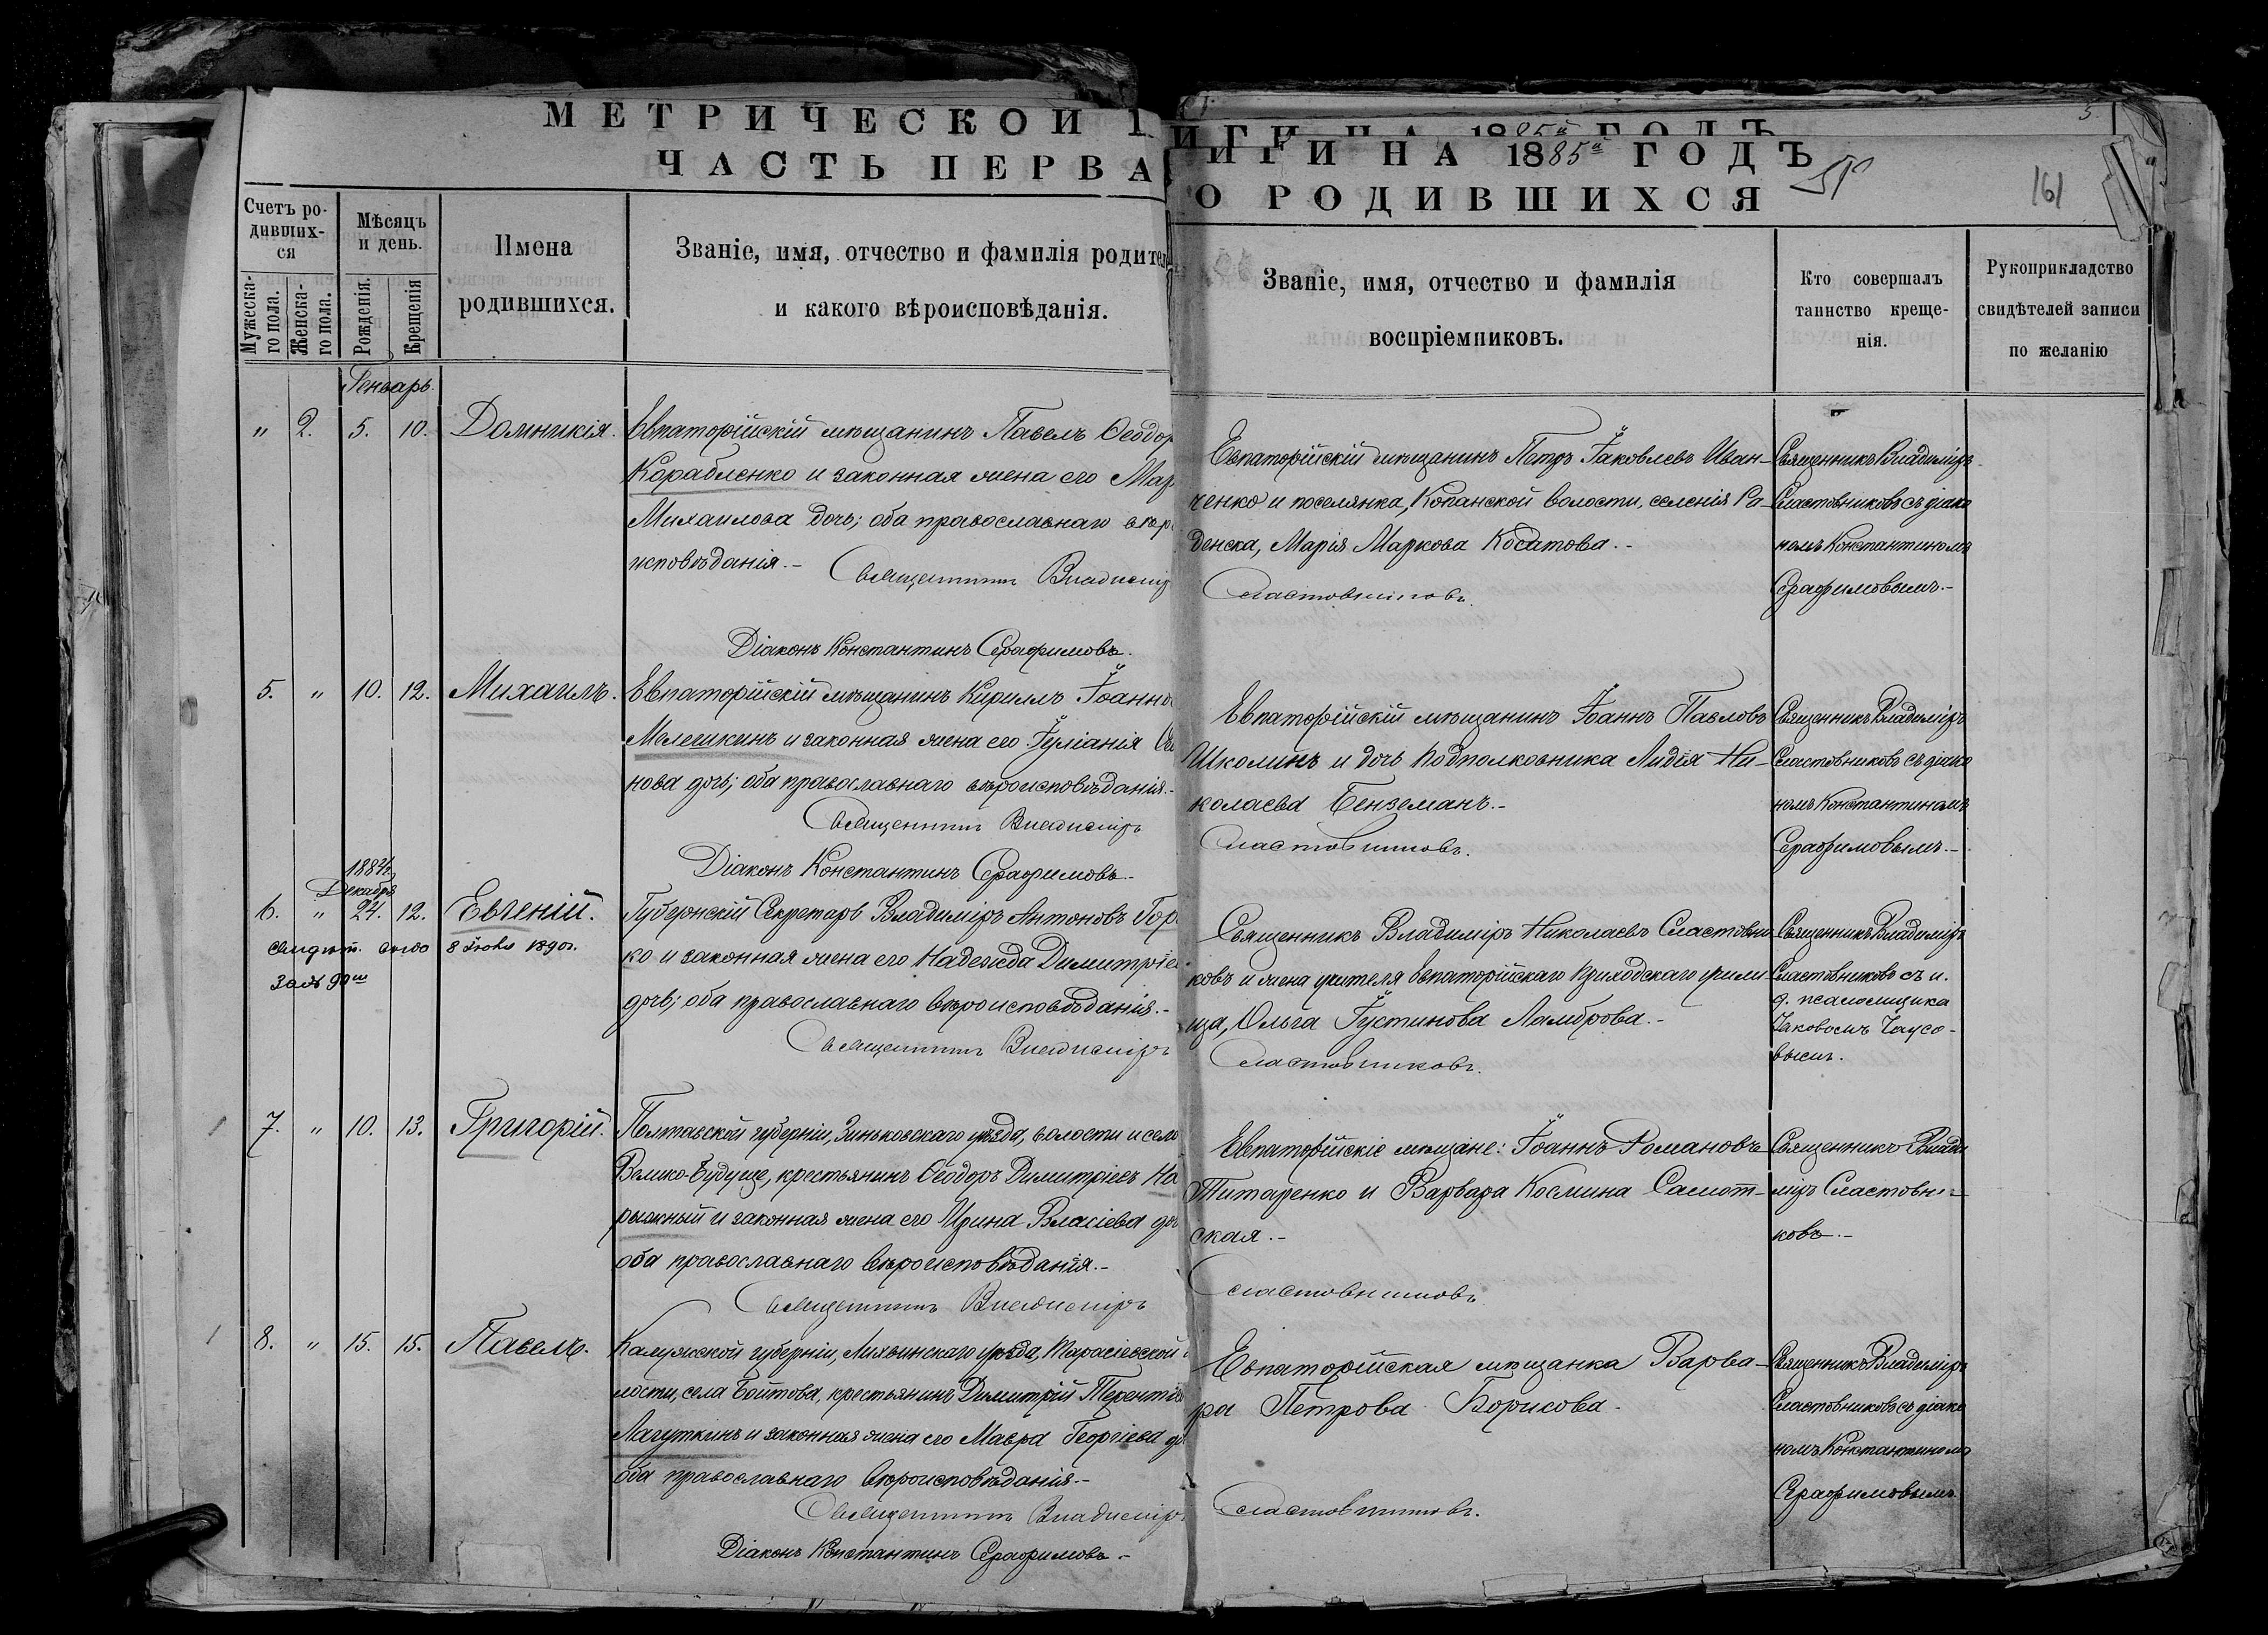 МЕТРИЧЕСКОЙ
ИГИ НА 1885й ГОДЪ
ИГИ НА 1885й ГОДЪ
ЧАСТЬ ПЕРВА
О РОДИВШИХСЯ
161
5
Счетъ ро-
дивших-
ся
Мужеска-
го пола.
Женска-
го пола.
Мѣсяцъ
и день.
Рожденія.
Крещенія
Имена
родившихся.
Званіе, имя, отчество и фамилія родител
и какого вѣроисповѣданія.
Званіе, имя, отчество и фамилія
воспріемниковъ.
Кто совершалъ
таинство креще-
нія.
Рукоприкладство
свидѣтелей записи
по желанію
Генварь.
" 2. 5. 10. Домникія.
Евпаторійскій мѣщанинъ Павелъ Ѳеодор
Корабленко и законная жена его Мар
Михаилова дочь; оба православнаго вѣро
исповѣданія.-
Священникъ Владимір
Діаконъ Константинъ Серафимовъ.
Евпаторійскій мѣщанинъ Петръ Іаковлевъ Иван-
ченко и поселянка, Копанской волости, селенія Ра-
денска, Марія Маркова Косатова.-
Сластовниковъ.
Священникъ Владиміръ
Сластовниковъ съ діако
номъ Константиномъ
Серафимовымъ.-
5. " 10. 12. Михаилъ.
Евпаторійскій мѣщанинъ Кириллъ Іоанно
Мелешкинъ и законная жена его Іуліанія
нова дочь; оба православнаго вѣроисповѣданія.-
Священникъ Владиміръ
Діаконъ Константинъ Серафимовъ.-
Евпаторійскій мѣщанинъ Іоаннъ Павловъ
Школинъ и дочь подполковника Лидія Ни-
колаева Бенземанъ.-
Сластовниковъ.
Священникъ Владиміръ
Сластовниковъ съ діако
номъ Константиномъ
Серафимовымъ.-
1884.
Декабря
6. " 24. 12. Евгеній.
свидѣт. выдо 8 Іюня 1890г.
за № 90м
Губернскій Секретарь Владиміръ Антоновъ Гор
ко и законная жена его Надежда Димитріе
дочь; оба православнаго вѣроисповѣданія.-
Священникъ Владиміръ
Священникъ Владиміръ Николаевъ Сластовни
ковъ и жена учителя Евпаторійскаго приходскаго учили-
ща, Ольга Іустинова Ламброва.-
Сластовниковъ.
Священникъ Владиміръ
Сластовниковъ съ и.
д. псаломщика
Іаковомъ Чаусо-
вымъ.
7. " 10. 13. Григорій.
Полтавской губерніи, Зиньковскаго уѣзда, волости и села
Велико-Будуще, крестьянинъ Ѳеодоръ Димитріевъ На
рыжный и законная жена его Ирина Власіева доч
оба православнаго вѣроисповѣданія.-
Священникъ Владиміръ
Евпаторійскіе мѣщане: Іоаннъ Романовъ
Титаренко и Варвара Космина Самот-
ская.-
Сластовниковъ.
Священникъ Влади
міръ Сластовни-
ковъ.-
8. " 15. 15. Павелъ.
Калужской губерніи, Лихвинскаго уѣзда, Тарасіевской
лости, села Войтова, крестьянинъ Димитрій Терентіе
Лагуткинъ и законная жена его Мавра Георгіева до
оба православнаго вѣроисповѣданія.-
Священникъ Владиміръ
Діаконъ Константинъ Серафимовъ.-
Евпаторійская мѣщанка Варва-
ра Петрова Борисова.
Сластовниковъ.
Священникъ Владиміръ
Сластовниковъ съ діако
номъ Константиномъ
Серафимовымъ